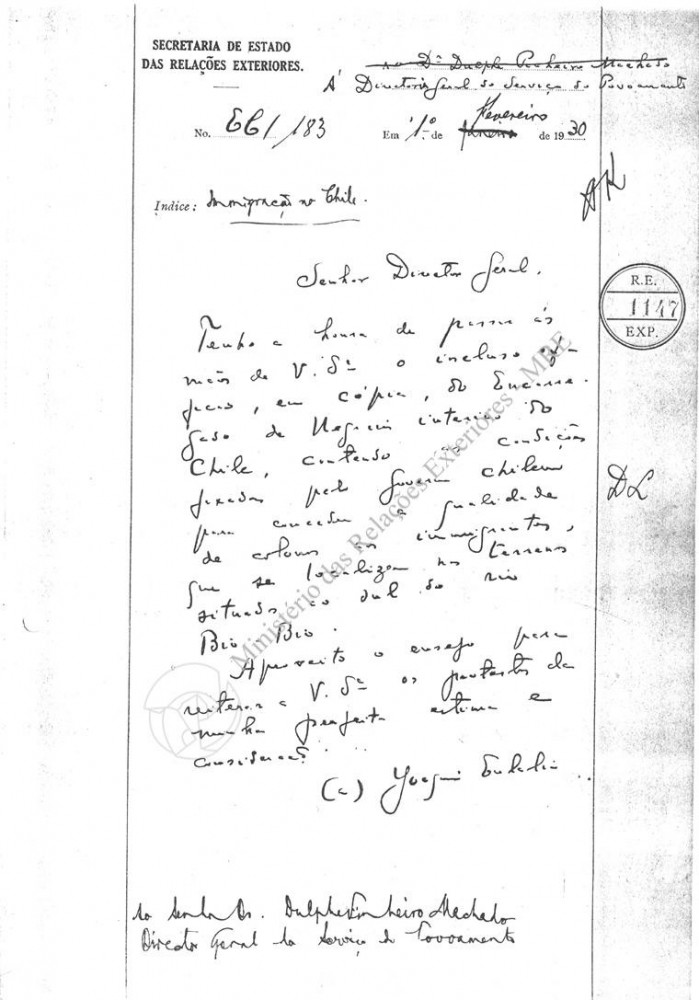 SECRETARIA DE ESTADO
DAS RELAÇÕES EXTERIORES.
ao Dr Dulphe Pinheiro Machado
Á Directoria Geral do Serviço do Povoamento
No. EC/183
Em 1º de Janeiro Fevereiro de 1930
Indice: Immigração no Chile.
Senhor Director Geral,
Tenho a honra de passar ás
mãos de V. Sª o incluso
, em cópia, do Encarre-
gado de Negocios interino do
Chile, contendo as condições
fixadas pelo Governo chileno
para conceder a qualidade
de colonos aos immigrantes,
que se localizem nos terrenos
situados ao sul do rio
Bio-Bio.
Aproveito o ensejo para
reiterar a V. Sª os protestos da
minha perfeita estima e
consideração.
(a) Joaquim Eulalio
Ao Senhor Dr. Dulphe Pinheiro Machado
Director Geral do Serviço de Povoamento
R.E.
1147
EXP.
DL
Ministério das Relações Exteriores - MRE